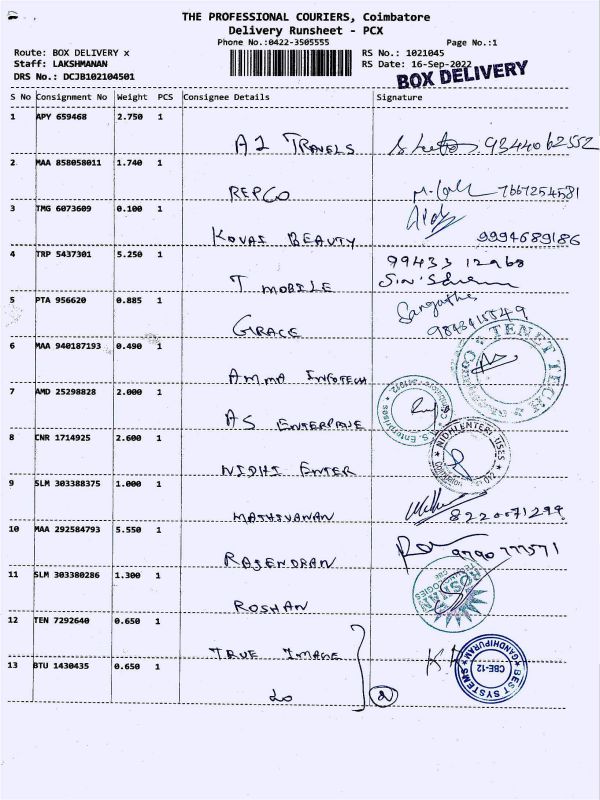 THE PROFESSIONAL COURIERS, Coimbatore
Delivery Runsheet - PCX
Phone No.:0422-3505555
Page No.:1
Route: BOX DELIVERY x
RS No.: 1021045
Staff: LAKSHMANAN
RS Date: 16-Sep-2022
DRS No.: DCJB102104501
BOX DELIVERY
S No Consignment No Weight PCS Consignee Details Signature
1 APY 659468 2.750 1
A1 TRAVELS 9344062552
2 MAA 858058011 1.740 1
REPCO 7667254581
3 TMG 6073609 0.100 1
KOVAI BEAUTY 9994689186
4 TRP 5437301 5.250 1
99433 12968
T MOBILE
5 PTA 956620 0.885 1
Sangathe
GRACE
6 MAA 940187193 0.490 1
TENET TECH
AMMA INFOTECH
7 AMD 25298828 2.000 1
A.S. Enterprises
AS ENTERPRISE
8 CNR 1714925 2.600 1
NIDHI ENTER
9 SLM 303388375 1.000 1
MATHIVANAN 8220071299
10 MAA 292584793 5.550 1
RAJENDRAN 9790777571
11 SLM 303380286 1.300 1
ROSHAN
12 TEN 7292640 0.650 1
TRUE IMAGE
13 BTU 1430435 0.650 1
BEST SYSTEMS
GANDHIPURAM
CBE-12
Lo 2